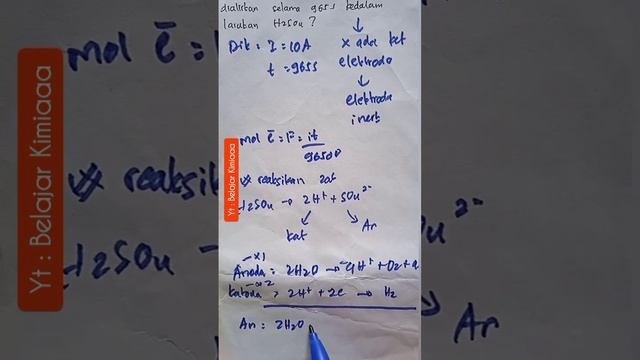 dialirkan selama 965 s kedalam
larutan H2SO4 ?
Dik : I = 10A
t = 965s
x ada ket
elektroda
↓
elektroda
inert
mol ē = F = it
96500
reaksikan zat
H2SO4 → 2H⁺ + SO4²⁻
kat
An
Anoda = 2H2O → 4H⁺ + O2 + 4
Katoda = 2H⁺ + 2e → H2
An : 2H2O
Yt : Belajar Kimiaaa